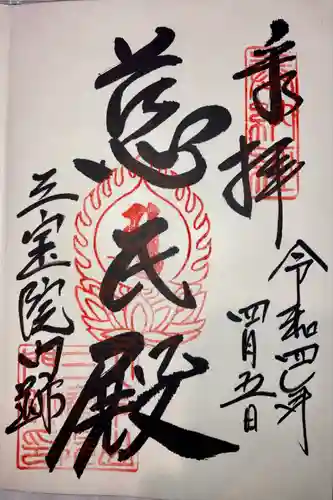 奉拝
令和四年
四月五日
慈氏殿
三宝院門跡